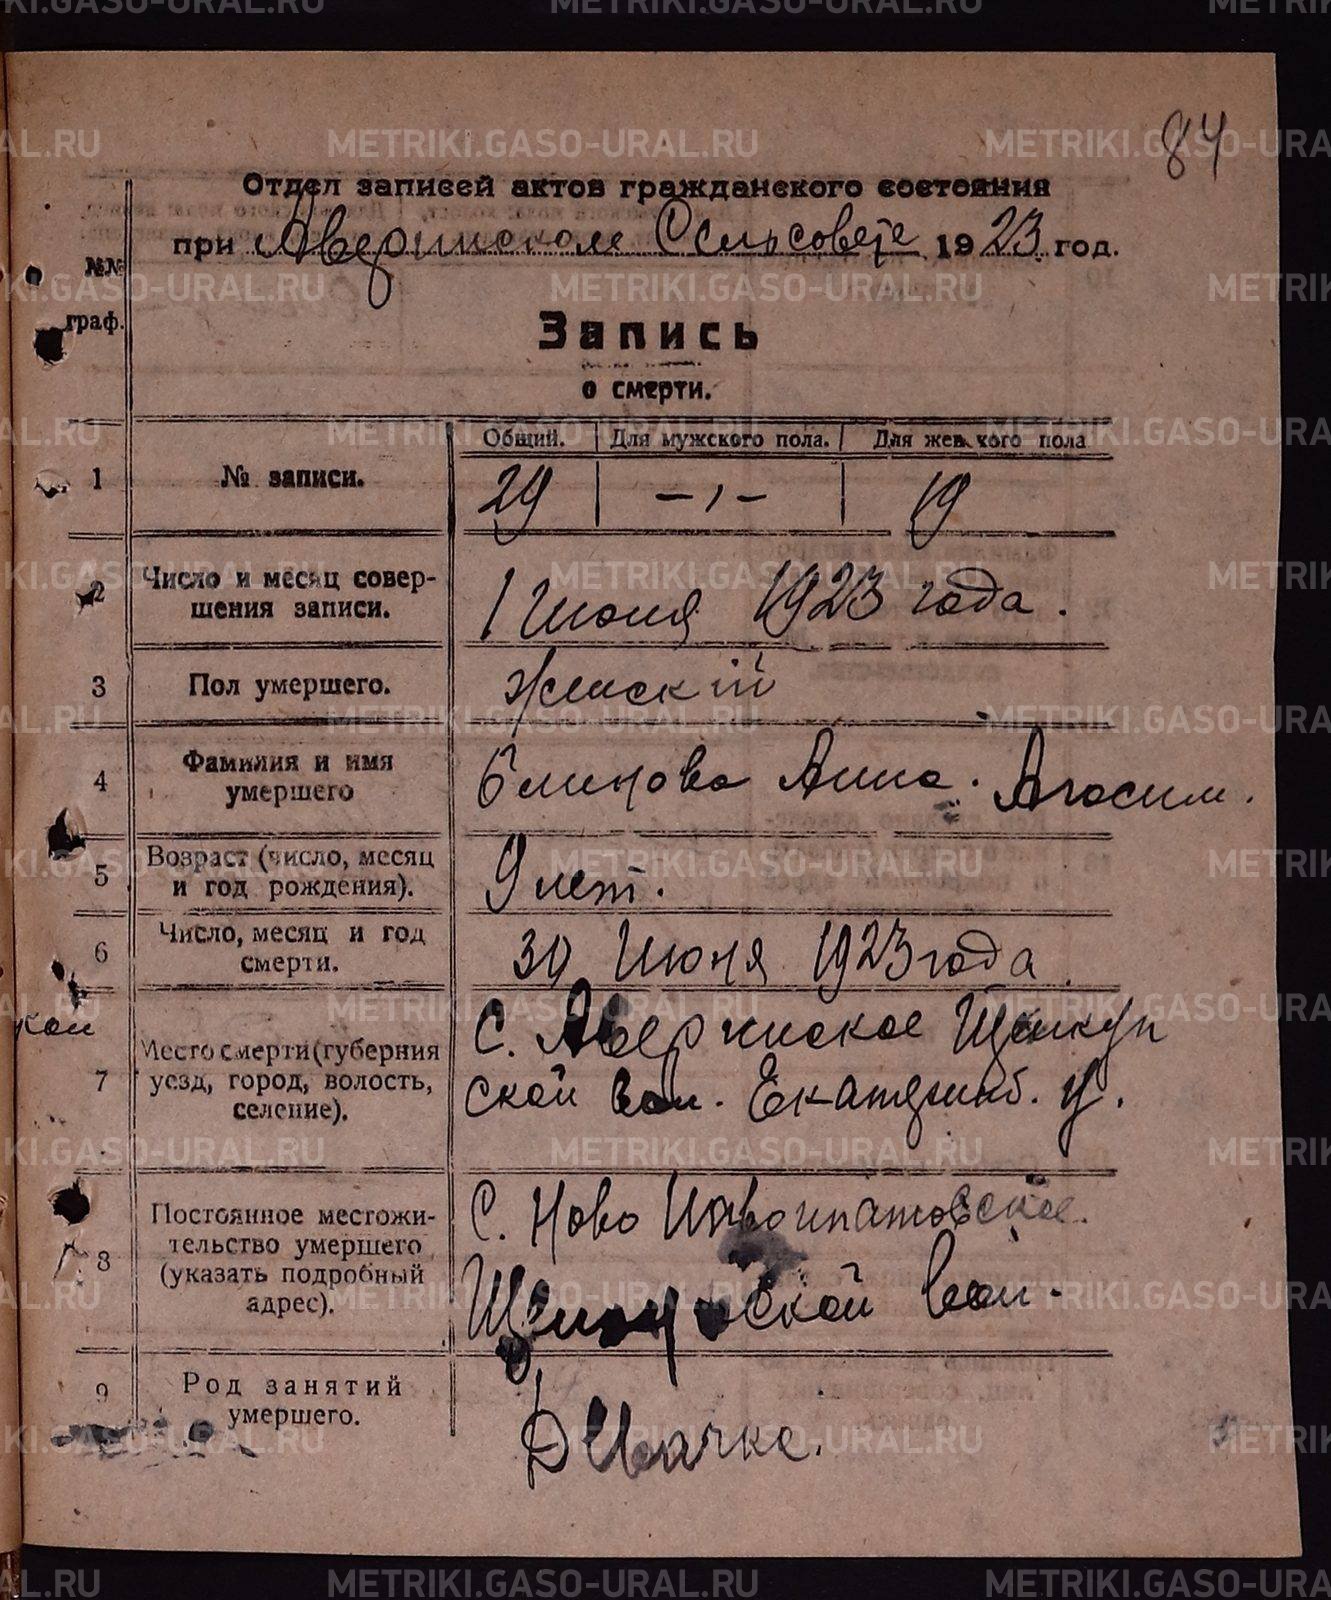 84
Отдел записей актов гражданского состояния
при Аверинском Сельсовете 1923 год.
№№
граф.
Запись
о смерти.
Общий. Для мужского пола. Для женского пола
1 № записи. 29 – 19
2 Число и месяц совер-
шения записи.
1 Июня 1923 года.
3 Пол умершего. Женский
4 Фамилия и имя
умершего
Анна.
5 Возраст (число, месяц
и год рождения).
9 лет.
6 Число, месяц и год
смерти.
30 Июня 1923 года.
7 Место смерти (губерния
уезд, город, волость,
селение).
С. Аверинское Щелкун
ской вол. Екатеринб. у.
8 Постоянное местожи-
тельство умершего
(указать подробный
адрес).
С. Ново Ипатовское.
Щелкунской вол.
9 Род занятий
умершего.
METRIKI.GASO-URAL.RU